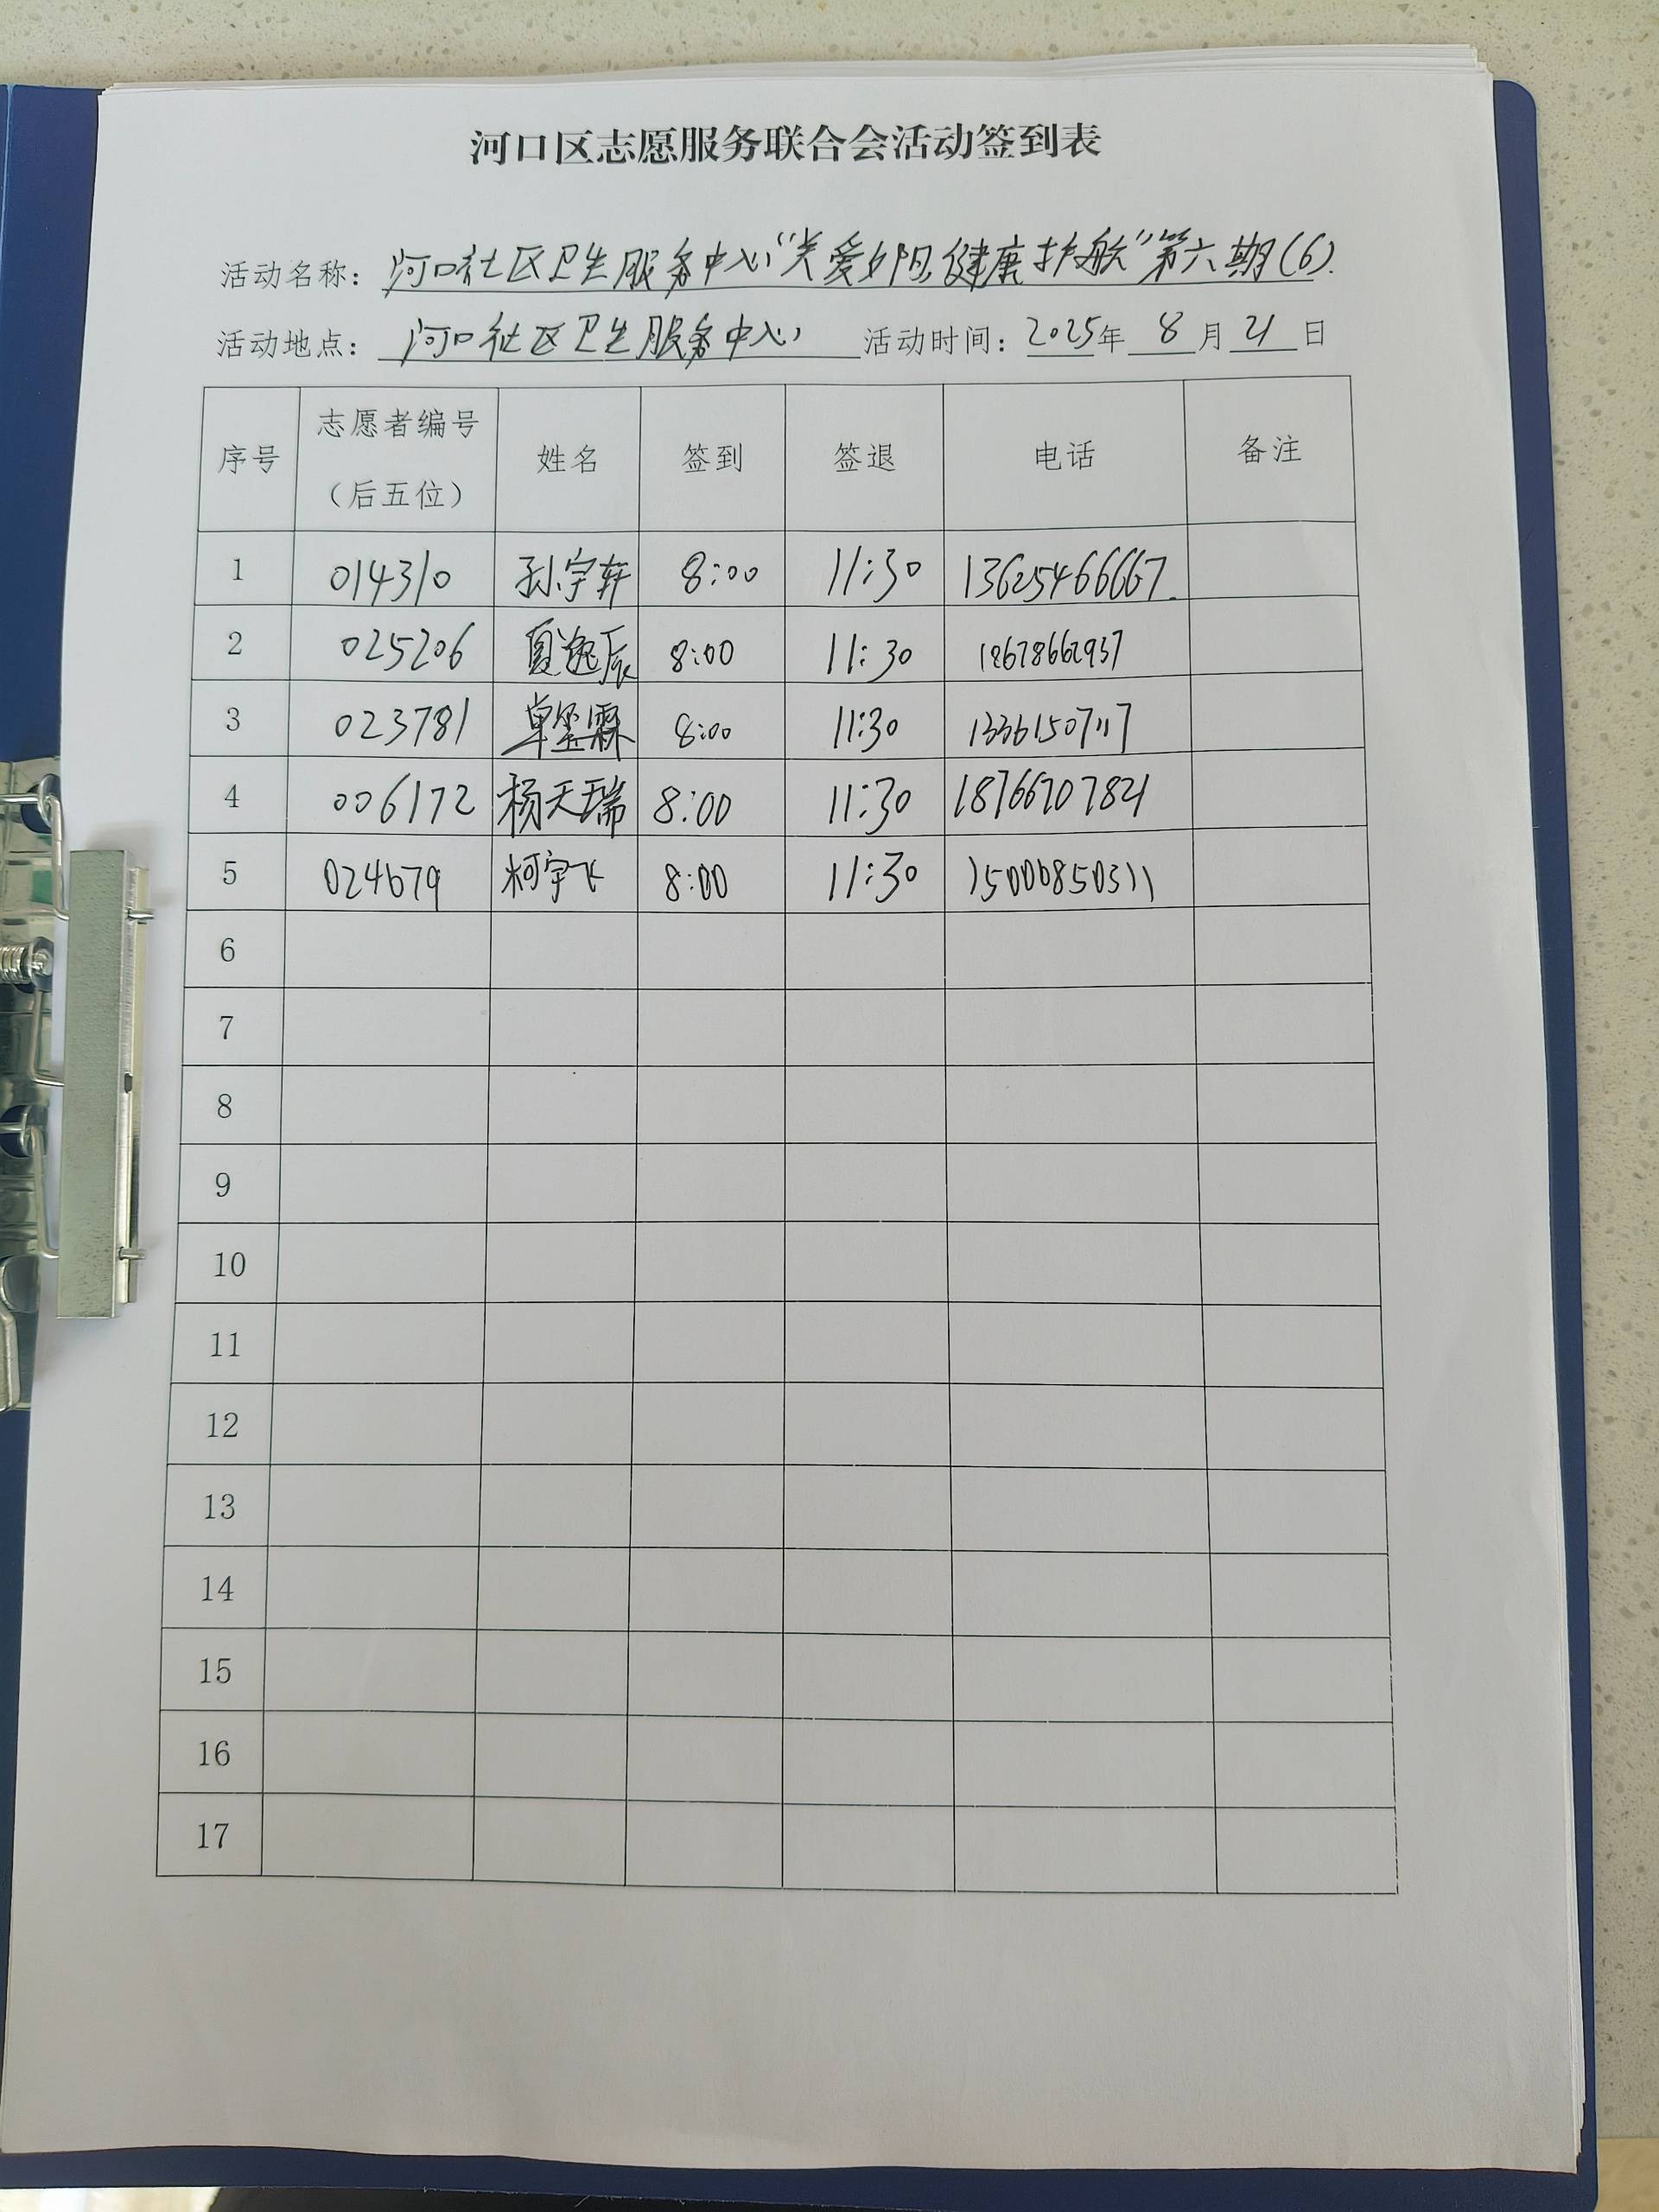 河口区志愿服务联合会活动签到表
活动名称：河口社区卫生服务中心“关爱夕阳，健康护航”第六期(6).
活动地点：河口社区卫生服务中心 活动时间：2025年 8 月 21 日
序号 志愿者编号（后五位） 姓名 签到 签退 电话 备注
1 014310 孙宇轩 8:00 11:30 13625466667.
2 025206 夏逸辰 8:00 11:30 18678662937
3 023781 单玺霖 8:00 11:30 13361507117
4 006172 杨天瑞 8:00 11:30 18766707821
5 024679 柯宇飞 8:00 11:30 15006850311
6
7
8
9
10
11
12
13
14
15
16
17